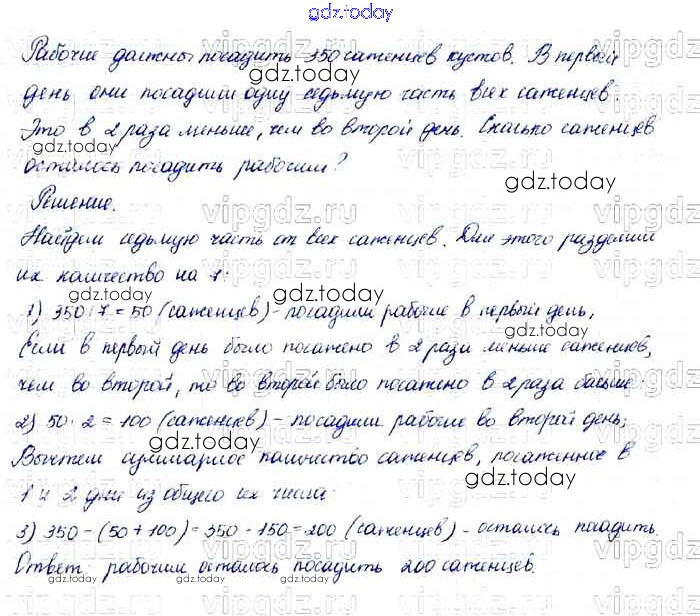 gdz.today
Рабочие должны посадить 350 саженцев кустов. В первый
gdz.today
день они посадили одну седьмую часть всех саженцев.
Это в 2 раза меньше, чем во второй день. Сколько саженцев
осталось посадить рабочим?
gdz.today
Решение.
vipgdz.ru
Найдем седьмую часть от всех саженцев. Для этого разделим
их количество на 7:
gdz.today gdz.today
1) 350:7=50 (саженцев) - посадили рабочие в первый день,
Если в первый день было посажено в 2 раза меньше саженцев,
чем во второй, то во второй было посажено в 2 раза больше:
2) 50·2=100 (саженцев) - посадили рабочие во второй день;
gdz.today
Вычтем суммарное количество саженцев, посаженное в
gdz.today
1 и 2 дни из общего их числа.
3) 350-(50+100)=350-150=200 (саженцев) - осталось посадить.
Ответ: рабочим осталось посадить 200 саженцев.
gdz.today gdz.today